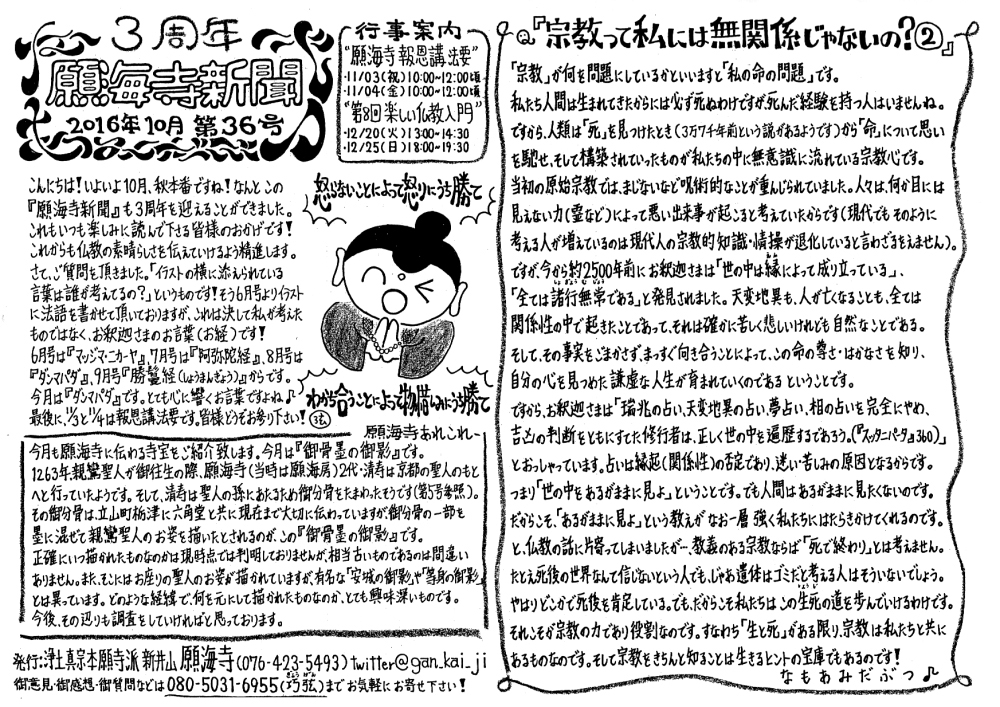 3周年
願海寺新聞
2016年10月 第36号
行事案内
"願海寺報恩講法要"
・11/03(祝)10:00~12:00頃
・11/04(金)10:00~12:00頃
"第8回楽しい仏教入門"
・12/20(火)13:00~14:30
・12/25(日)18:00~19:30
こんにちは!いよいよ10月、秋本番ですね!なんとこの
『願海寺新聞』も3周年を迎えることができました。
これもいつも楽しみに読んで下さる皆様のおかげです!
これからも仏教の素晴らしさを伝えていけるよう精進します。
さて、ご質問を頂きました。「イラストの横に添えられている
言葉は誰が考えてるの?」というものです!そう6月号よりイラスト
に法語を書かせて頂いておりますが、これは決して私が考えた
ものではなく、お釈迦さまのお言葉(お経)です!
6月号は『マッジマ・ニカーヤ』、7月号は『阿弥陀経』、8月号は
『ダンマパダ』、9月号『勝鬘経(しょうまんぎょう)』からです。
今月は『ダンマパダ』です。とても心に響くお言葉ですよね♪
最後に、11/3と11/4は報恩講法要です。皆様どうぞお参り下さい!
弦
怒らないことによって怒りにうち勝て
わかち合うことによって物惜しみにうち勝て
願海寺あれこれ~
今月も願海寺に伝わる寺宝をご紹介致します。今月は『御骨墨の御影』です。
1263年、親鸞聖人が御往生の際、願海寺(当時は願海房)2代・清寿は京都の聖人のもと
へと行っていたようです。そして、清寿は聖人の孫にあたるため御分骨をたまわったそうです(第5号参照)。
その御分骨は、立山町栃津に六角堂と共に現在まで大切に伝わっていますが、御分骨の一部を
墨に混ぜて親鸞聖人のお姿を描いたとされるのが、この『御骨墨の御影』です。
正確にいつ描かれたものなのかは現時点では判明しておりませんが、相当古いものであるのは間違い
ありません。また、そこにはお座りの聖人のお姿が描かれていますが、有名な「安城の御影」や「等身の御影」
とは異っています。どのような経緯で、何を元にして描かれたものなのか、とても興味深いものです。
今後、その辺りも調査をしていければと思っております。
発行:浄土真宗本願寺派 新井山 願海寺(076-423-5493)twitter@gan_kai_ji
御意見・御感想・御質問などは080-5031-6955(巧弦)までお気軽にお寄せ下さい!
Q.『宗教って私には無関係じゃないの?②』
「宗教」が何を問題にしているかといいますと「私の命の問題」です。
私たち人間は生まれてきたからには必ず死ぬわけですが、死んだ経験を持つ人はいませんね。
ですから、人類は「死」を見つけたとき(3万7千年前という説があるようです)から「命」について思い
を馳せ、そして構築されていったものが私たちの中に無意識に流れている宗教心です。
当初の原始宗教では、まじないなど呪術的なことが重んじられていました。人々は、何か目には
見えない力(霊など)によって悪い出来事が起こると考えていたからです(現代でもそのように
考える人が増えているのは現代人の宗教的知識・情操が退化していると言わざるをえません)。
ですが、今から約2500年前にお釈迦さまは「世の中は縁によって成り立っている」、
「全ては諸行無常である」と発見されました。天変地異も、人が亡くなることも、全ては
関係性の中で起きたことであって、それは確かに苦しく悲しいけれども自然なことである。
そして、その事実をごまかさず、まっすぐ向き合うことによって、この命の尊さ・はかなさを知り、
自分の心を見つめた謙虚な人生が育まれていくのであるということです。
ですから、お釈迦さまは「瑞兆の占い、天変地異の占い、夢占い、相の占いを完全にやめ、
吉凶の判断をともにすてた修行者は、正しく世の中を遍歴するであろう。(『スッタニパータ』360)」
とおっしゃっています。占いは縁起(関係性)の否定であり、迷い・苦しみの原因となるからです。
つまり「世の中をあるがままに見よ」ということです。でも人間はあるがままに見たくないのです。
だからこそ、「あるがままに見よ」という教えがなお一層強く私たちにはたらきかけてくれるのです。
と、仏教の話に片寄ってしまいましたが…、教義のある宗教ならば「死で終わり」とは考えません。
たとえ死後の世界なんて信じないという人でも、じゃあ遺体はゴミだと考える人はそういないでしょう。
やはりどこかで死後を肯定している。でも、だからこそ私たちはこの生死の道を歩んでいけるわけです。
それこそが宗教の力であり役割なのです。すなわち「生と死」がある限り、宗教は私たちと共に
あるものなのです。そして宗教をきちんと知ることは生きるヒントの宝庫でもあるのです!
なもあみだぶつ♪